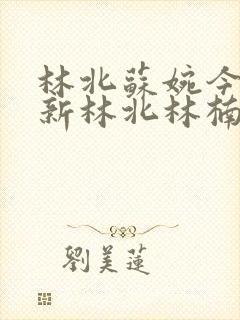 林北蘇婉今
新林北林楠
劉美蓮